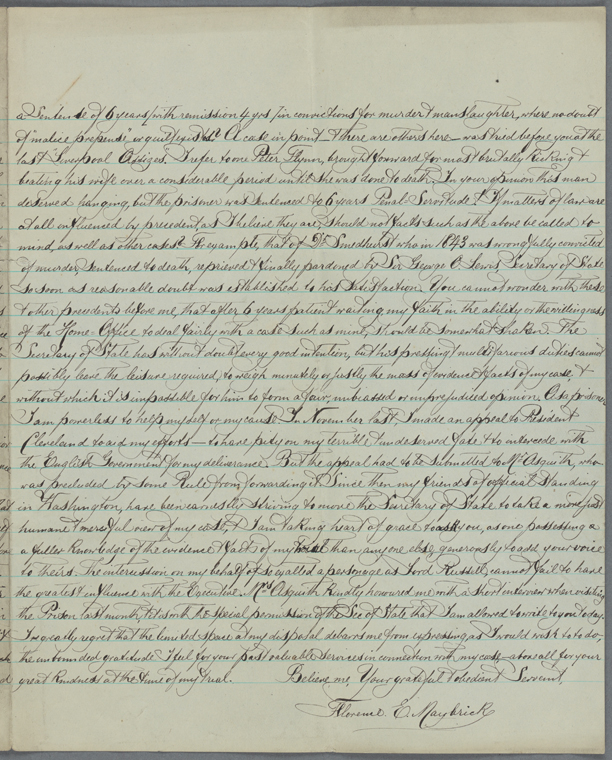 a Sentence of 6 years (with remission 4 yrs) in convictions for murder & manslaughter, where no doubt
of "malice prepense" or guilt exists? A case in point – & there are others here – was tried before you at the
last Liverpool Assizes. I refer to one Peter Flynn, brought forward for most brutally kicking &
beating his wife over a considerable period until she was done to death. In your opinion this man
deserved hanging, but the prisoner was sentenced to 6 years Penal Servitude. If matters of law are
at all influenced by precedent, as I believe they are, should not facts such as the above be called to
mind, as well as other cases? For example, that of Dr Smethurst who in 1843 was wrongfully convicted
of murder, sentenced to death, reprieved & finally pardoned by Sir George C. Lewis, Secretary of State
so soon as reasonable doubt was established to his satisfaction. You cannot wonder with these
& other precedents before me, that after 6 years patient waiting my faith in the ability or the willingness
of the Home Office to deal fairly with a case such as mine, should be somewhat shaken. The
Secretary of State has without doubt every good intention, but his pressing & multifarious duties cannot
possibly leave the leisure required, to weigh minutely or justly the mass of evidence & facts of my case, &
without which it is impossible for him to form a fair, unbiassed or unprejudiced opinion. As a prisoner
I am powerless to help myself or my cause. In November last, I made an appeal to President
Cleveland to aid my efforts – to have pity on my terrible & undeserved fate & to intercede with
the English Government for my deliverance. But the appeal had to be submitted to Mr Asquith, who
was precluded by some Rule from forwarding it. Since then my friends of official standing
in Washington, have been earnestly striving to move the Secretary of State to take a more just
humane & merciful view of my case, & I am taking heart of grace to ask you, as one possessing a
a fuller knowledge of the evidence & facts of my trial than any one else, generously to add your voice
to theirs. The intercession on my behalf of so exalted a personage as Lord Russell, cannot fail to have
the greatest influence with the Executive. Mr Asquith kindly honoured me with a short interview when visiting
the Prison last month, & it is with the special permission of the Sec of State that I am allowed to write to you today.
I greatly regret that the limited space at my disposal debars me from expressing, as I would wish to do,
the unbounded gratitude I feel for your past valuable services in connection with my case – above all for your
great kindness at the time of my trial. Believe me, Your grateful & obedient Servant
Florence E. Maybrick